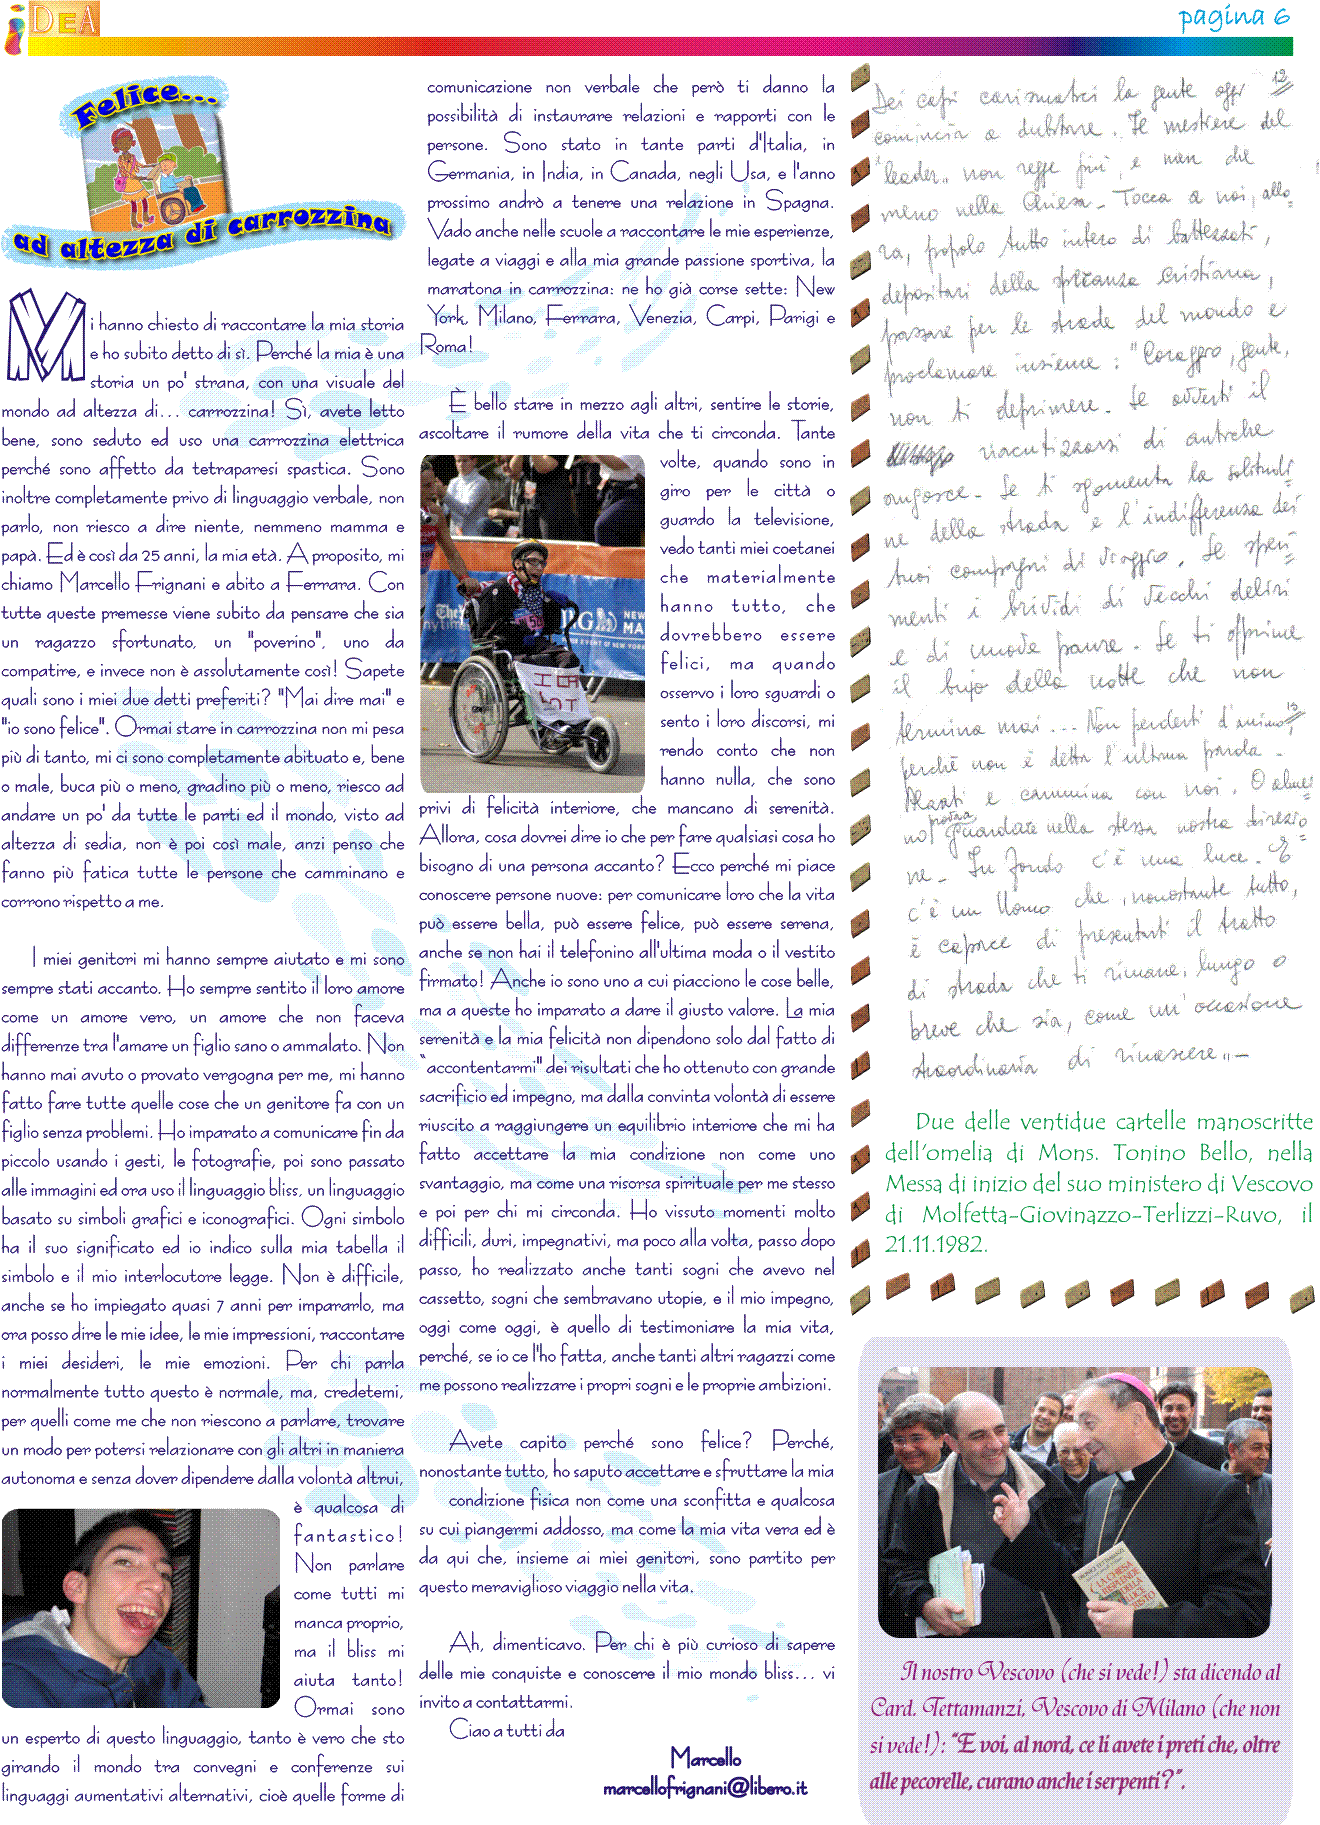 iDEA
pagina 6
Felice...
ad altezza di carrozzina
Mi hanno chiesto di raccontare la mia storia
e ho subito detto di sì. Perché la mia è una
storia un po' strana, con una visuale del
mondo ad altezza di... carrozzina! Sì, avete letto
bene, sono seduto ed uso una carrozzina elettrica
perché sono affetto da tetraparesi spastica. Sono
inoltre completamente privo di linguaggio verbale, non
parlo, non riesco a dire niente, nemmeno mamma e
papà. Ed è così da 25 anni, la mia età. A proposito, mi
chiamo Marcello Frignani e abito a Ferrara. Con
tutte queste premesse viene subito da pensare che sia
un ragazzo sfortunato, un "poverino", uno da
compatire, e invece non è assolutamente così! Sapete
quali sono i miei due detti preferiti? "Mai dire mai" e
"io sono felice". Ormai stare in carrozzina non mi pesa
più di tanto, mi ci sono completamente abituato e, bene
o male, buca più o meno, gradino più o meno, riesco ad
andare un po' da tutte le parti ed il mondo, visto ad
altezza di sedia, non è poi così male, anzi penso che
fanno più fatica tutte le persone che camminano e
corrono rispetto a me.
I miei genitori mi hanno sempre aiutato e mi sono
sempre stati accanto. Ho sempre sentito il loro amore
come un amore vero, un amore che non faceva
differenze tra l'amare un figlio sano o ammalato. Non
hanno mai avuto o provato vergogna per me, mi hanno
fatto fare tutte quelle cose che un genitore fa con un
figlio senza problemi. Ho imparato a comunicare fin da
piccolo usando i gesti, le fotografie, poi sono passato
alle immagini ed ora uso il linguaggio bliss, un linguaggio
basato su simboli grafici e iconografici. Ogni simbolo
ha il suo significato ed io indico sulla mia tabella il
simbolo e il mio interlocutore legge. Non è difficile,
anche se ho impiegato quasi 7 anni per impararlo, ma
ora posso dire le mie idee, le mie impressioni, raccontare
i miei desideri, le mie emozioni. Per chi parla
normalmente tutto questo è normale, ma, credetemi,
per quelli come me che non riescono a parlare, trovare
un modo per potersi relazionare con gli altri in maniera
autonoma e senza dover dipendere dalla volontà altrui,
è qualcosa di
fantastico!
Non parlare
come tutti mi
manca proprio,
ma il bliss mi
aiuta tanto!
Ormai sono
un esperto di questo linguaggio, tanto è vero che sto
girando il mondo tra convegni e conferenze sui
linguaggi aumentativi alternativi, cioè quelle forme di
comunicazione non verbale che però ti danno la
possibilità di instaurare relazioni e rapporti con le
persone. Sono stato in tante parti d'Italia, in
Germania, in India, in Canada, negli Usa, e l'anno
prossimo andrò a tenere una relazione in Spagna.
Vado anche nelle scuole a raccontare le mie esperienze,
legate a viaggi e alla mia grande passione sportiva, la
maratona in carrozzina: ne ho già corse sette: New
York, Milano, Ferrara, Venezia, Carpi, Parigi e
Roma!
È bello stare in mezzo agli altri, sentire le storie,
ascoltare il rumore della vita che ti circonda. Tante
volte, quando sono in
giro per le città o
guardo la televisione,
vedo tanti miei coetanei
che materialmente
hanno tutto, che
dovrebbero essere
felici, ma quando
osservo i loro sguardi o
sento i loro discorsi, mi
rendo conto che non
hanno nulla, che sono
privi di felicità interiore, che mancano di serenità.
Allora, cosa dovrei dire io che per fare qualsiasi cosa ho
bisogno di una persona accanto? Ecco perché mi piace
conoscere persone nuove: per comunicare loro che la vita
può essere bella, può essere felice, può essere serena,
anche se non hai il telefonino all'ultima moda o il vestito
firmato! Anche io sono uno a cui piacciono le cose belle,
ma a queste ho imparato a dare il giusto valore. La mia
serenità e la mia felicità non dipendono solo dal fatto di
"accontentarmi" dei risultati che ho ottenuto con grande
sacrificio ed impegno, ma dalla convinta volontà di essere
riuscito a raggiungere un equilibrio interiore che mi ha
fatto accettare la mia condizione non come uno
svantaggio, ma come una risorsa spirituale per me stesso
e poi per chi mi circonda. Ho vissuto momenti molto
difficili, duri, impegnativi, ma poco alla volta, passo dopo
passo, ho realizzato anche tanti sogni che avevo nel
cassetto, sogni che sembravano utopie, e il mio impegno,
oggi come oggi, è quello di testimoniare la mia vita,
perché, se io ce l'ho fatta, anche tanti altri ragazzi come
me possono realizzare i propri sogni e le proprie ambizioni.
Avete capito perché sono felice? Perché,
nonostante tutto, ho saputo accettare e sfruttare la mia
condizione fisica non come una sconfitta e qualcosa
su cui piangermi addosso, ma come la mia vita vera ed è
da qui che, insieme ai miei genitori, sono partito per
questo meraviglioso viaggio nella vita.
Ah, dimenticavo. Per chi è più curioso di sapere
delle mie conquiste e conoscere il mio mondo bliss... vi
invito a contattarmi.
Ciao a tutti da
Marcello
marcellofrignani@libero.it
12
Dei capi carismatici la gente oggi
comincia a dubitare. Il mestiere del
"leader" non regge più, e non che
meno nella Chiesa. Tocca a noi, allo=
ra, popolo tutto intero di battezzati,
depositari della speranza cristiana,
passare per le strade del mondo e
proclamare insieme: "Coraggio, gente,
non ti deprimere. Se avverti il
riacutizzarsi di antiche
angosce. Se ti sgomenta la solitudi=
ne della strada e l'indifferenza dei
tuoi compagni di viaggio. Se speri=
menti i brividi di vecchi delirii
e di nuove paure. Se ti opprime
il buio della notte che non
13
termina mai... Non perderti d'animo,
perché non è detta l'ultima parola.
Alzati e cammina con noi. O alme=
no prova guardare nella stessa nostra direzio=
ne. In fondo c'è una luce. E
c'è un Uomo che, nonostante tutto,
è capace di presentarti il tratto
di strada che ti rimane, lungo o
breve che sia, come un'occasione
straordinaria di rinascere".
Due delle ventidue cartelle manoscritte
dell'omelia di Mons. Tonino Bello, nella
Messa di inizio del suo ministero di Vescovo
di Molfetta-Giovinazzo-Terlizzi-Ruvo, il
21.11.1982.
Il nostro Vescovo (che si vede!) sta dicendo al
Card. Tettamanzi, Vescovo di Milano (che non
si vede!): "E voi, al nord, ce li avete i preti che, oltre
alle pecorelle, curano anche i serpenti?".